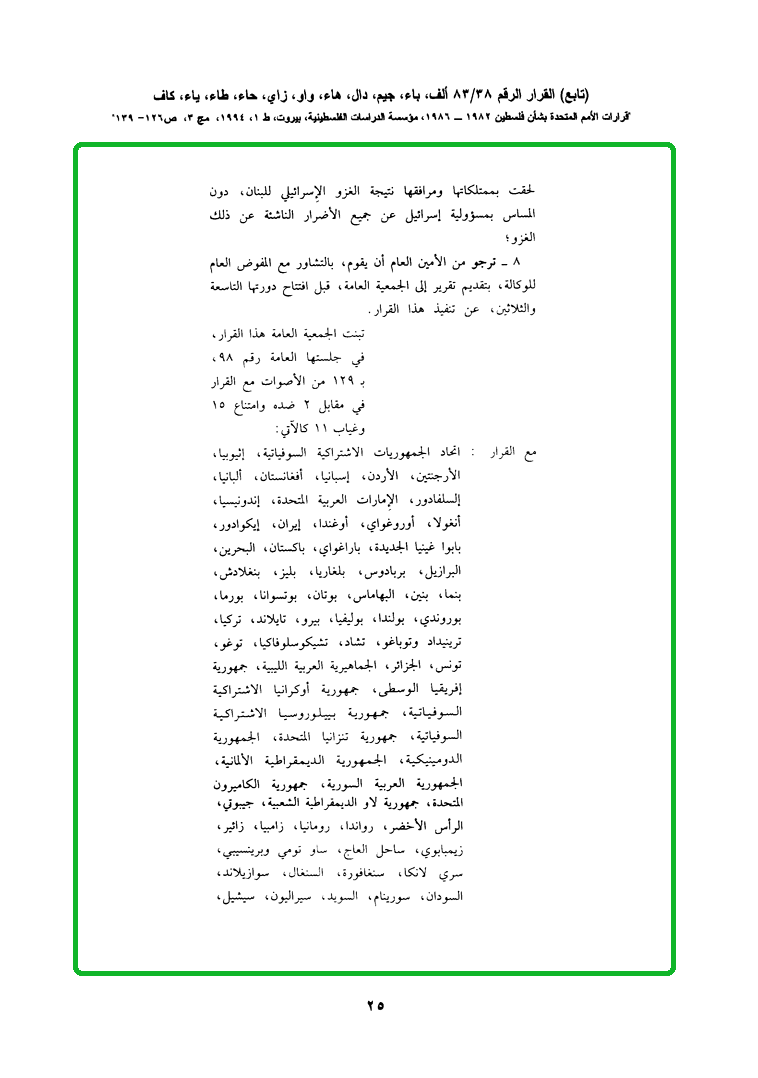 (تابع) القرار الرقم ٨٣/٣٨ ألف، باء، جيم، دال، هاء، واو، زاي، حاء، طاء، ياء، كاف
"قرارات الأمم المتحدة بشأن فلسطين ١٩٨٢ ــ ١٩٨٦، مؤسسة الدراسات الفلسطينية، بيروت، ط ١، ١٩٩٤، مج ٣، ص١٢٦- ١٣٩"
لحقت بممتلكاتها ومرافقها نتيجة الغزو الإسرائيلي للبنان، دون
المساس بمسؤولية إسرائيل عن جميع الأضرار الناشئة عن ذلك
الغزو؛
٨ ــ ترجو من الأمين العام أن يقوم، بالتشاور مع المفوض العام
للوكالة، بتقديم تقرير إلى الجمعية العامة، قبل افتتاح دورتها التاسعة
والثلاثين، عن تنفيذ هذا القرار.
تبنت الجمعية العامة هذا القرار،
في جلستها العامة رقم ٩٨،
بـ ١٢٩ من الأصوات مع القرار
في مقابل ٢ ضده وامتناع ١٥
وغياب ١١ كالآتي:
مع القرار : اتحاد الجمهوريات الاشتراكية السوفياتية، إثيوبيا،
الأرجنتين، الأردن، إسبانيا، أفغانستان، ألبانيا،
إلسلفادور، الإمارات العربية المتحدة، إندونيسيا،
أنغولا، أوروغواي، أوغندا، إيران، إيكوادور،
بابوا غينيا الجديدة، باراغواي، باكستان، البحرين،
البرازيل، بربادوس، بلغاريا، بليز، بنغلادش،
بنما، بنين، البهاماس، بوتان، بوتسوانا، بورما،
بوروندي، بولندا، بوليفيا، بيرو، تايلاند، تركيا،
ترينيداد وتوباغو، تشاد، تشيكوسلوفاكيا، توغو،
تونس، الجزائر، الجماهيرية العربية الليبية، جمهورية
إفريقيا الوسطى، جمهورية أوكرانيا الاشتراكية
السوفياتية، جمهورية بييلوروسيا الاشتراكية
السوفياتية، جمهورية تنزانيا المتحدة، الجمهورية
الدومينيكية، الجمهورية الديمقراطية الألمانية،
الجمهورية العربية السورية، جمهورية الكاميرون
المتحدة، جمهورية لاو الديمقراطية الشعبية، جيبوتي،
الرأس الأخضر، رواندا، رومانيا، زامبيا، زائير،
زيمبابوي، ساحل العاج، ساو تومي وبرينسيبي،
سري لانكا، سنغافورة، السنغال، سوازيلاند،
السودان، سورينام، السويد، سيراليون، سيشيل،
٢٥